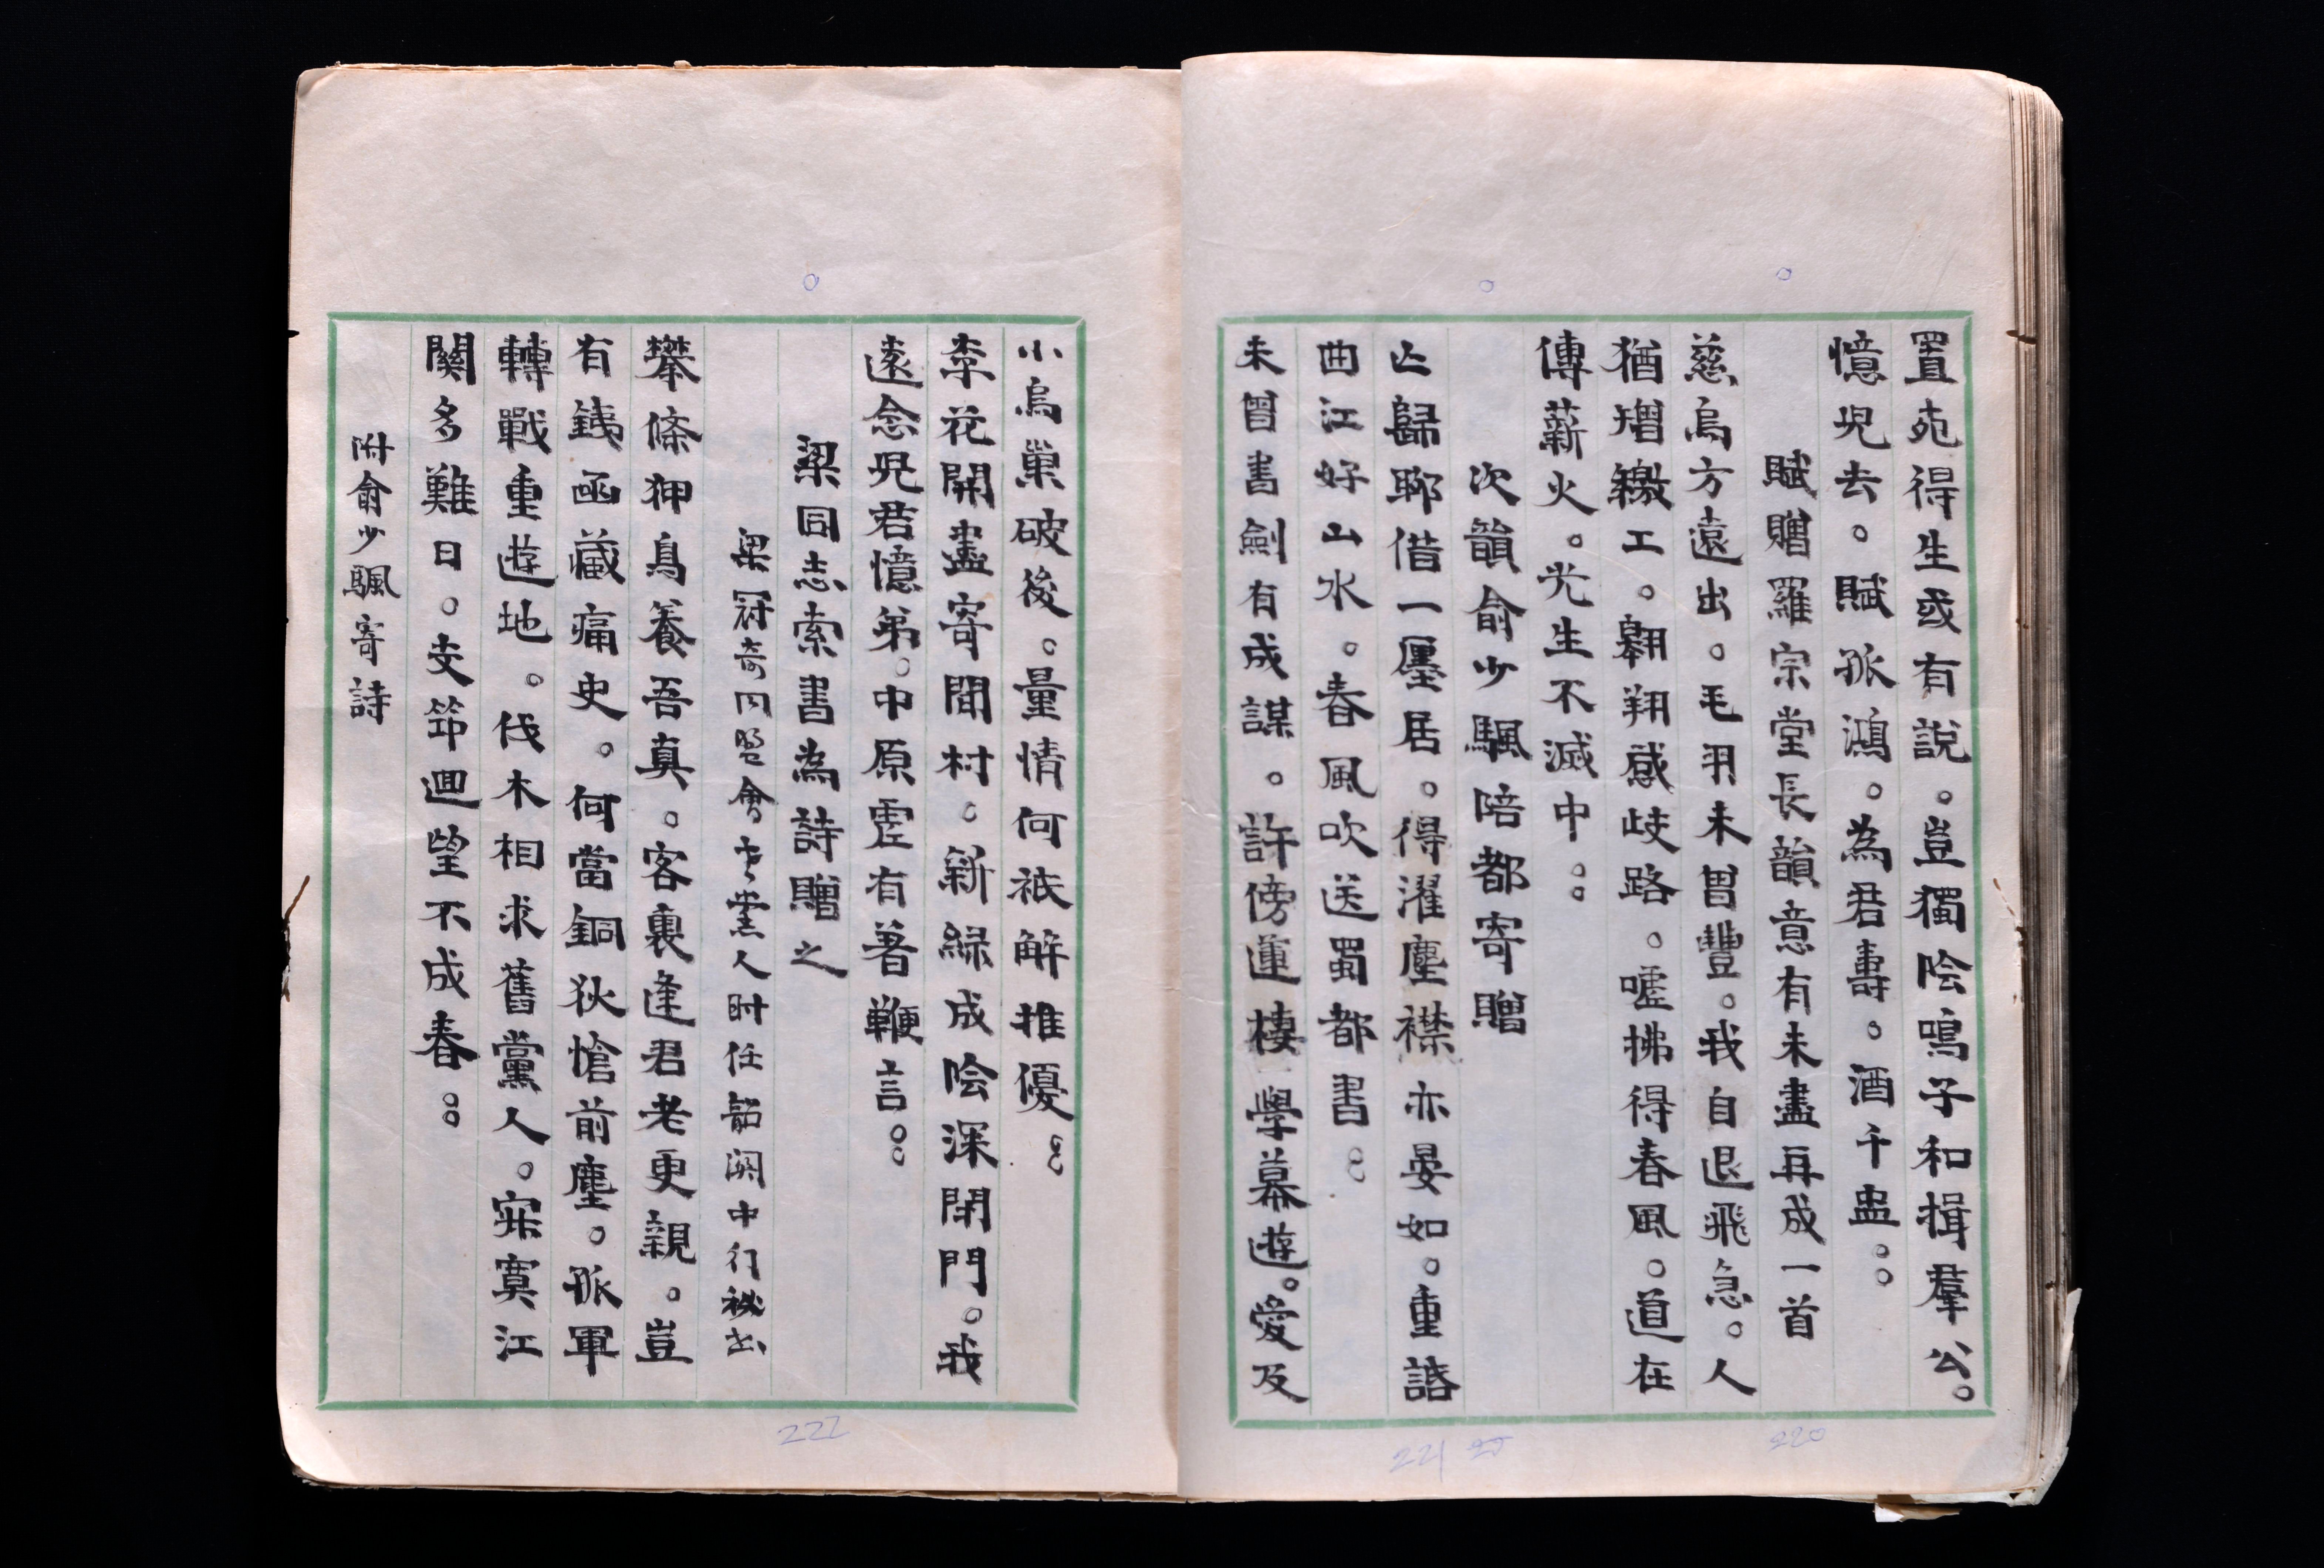 置宛得生或有說。豈獨陰鳴子和揖羣公。
憶兒去。賦孤鴻。為君壽。酒千盅。。
賦贈羅宗堂長韻意有未盡再成一首
慈烏方遠出。毛羽未曾豐。我自退飛急。人
猶矰繳工。翱翔感歧路。噓拂得春風。道在
傳薪火。光生不滅中。。
次韻俞少颿陪都寄贈
亾歸聊借一廛居。得濯塵襟亦晏如。重譜
曲江好山水。春風吹送蜀都書。。
未曾書劍有成謀。許傍蓮棲學幕遊。愛及
小烏巢破後。量情何祇解推優。。
李花開盡寄閒村。新綠成陰深閉門。我
遠念兒君憶弟。中原虛有著鞭言。。
梁同志索書為詩贈之
梁冠奇同盟會老黨人時任韶關中行祕書
攀條狎鳥養吾真。客裏逢君老更親。豈
有鐵函藏痛史。何當銅狄愴前塵。孤軍
轉戰重遊地。伐木相求舊黨人。寂寞江
關多難日。支筇迴望不成春。。
附俞少颿寄詩
220
221
222